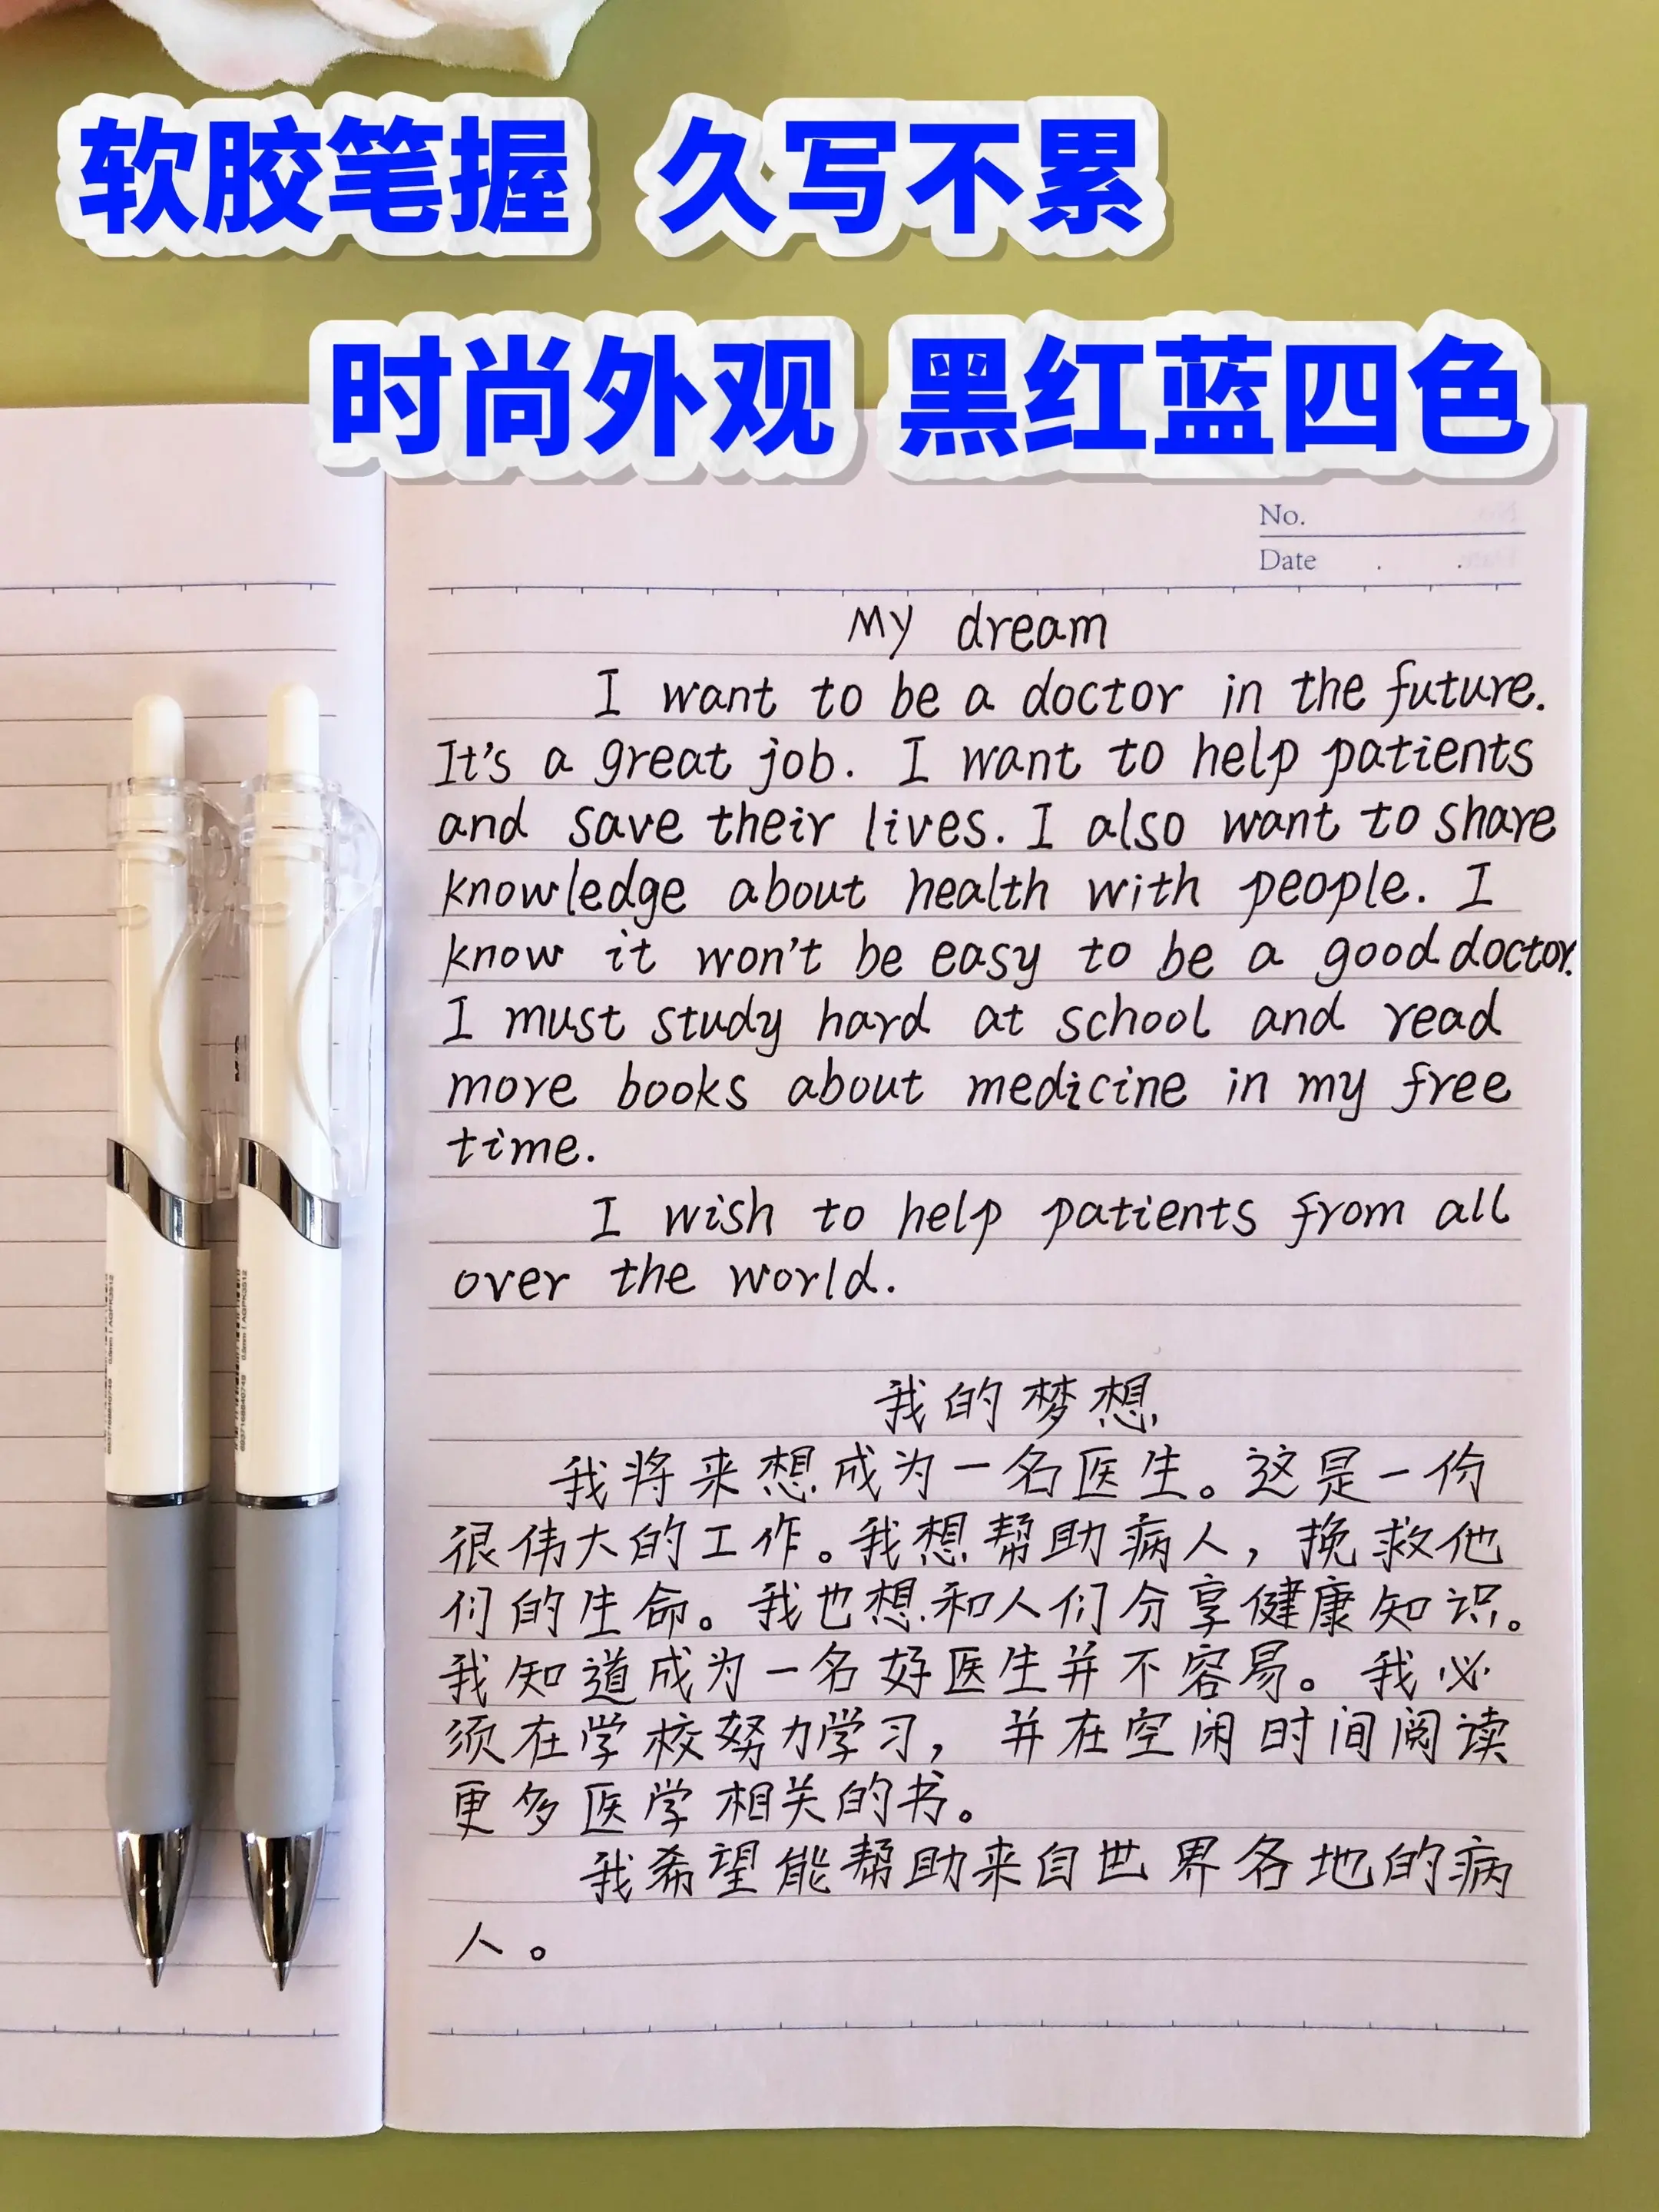 软胶笔握 久写不累
时尚外观 黑红蓝四色
No.
Date . .
My dream
I want to be a doctor in the future.
It's a great job. I want to help patients
and save their lives. I also want to share
knowledge about health with people. I
know it won't be easy to be a good doctor.
I must study hard at school and read
more books about medicine in my free
time.
I wish to help patients from all
over the world.
我的梦想
我将来想成为一名医生。这是一份
很伟大的工作。我想帮助病人，挽救他
们的生命。我也想和人们分享健康知识。
我知道成为一名好医生并不容易。我必
须在学校努力学习，并在空闲时间阅读
更多医学相关的书。
我希望能帮助来自世界各地的病
人。